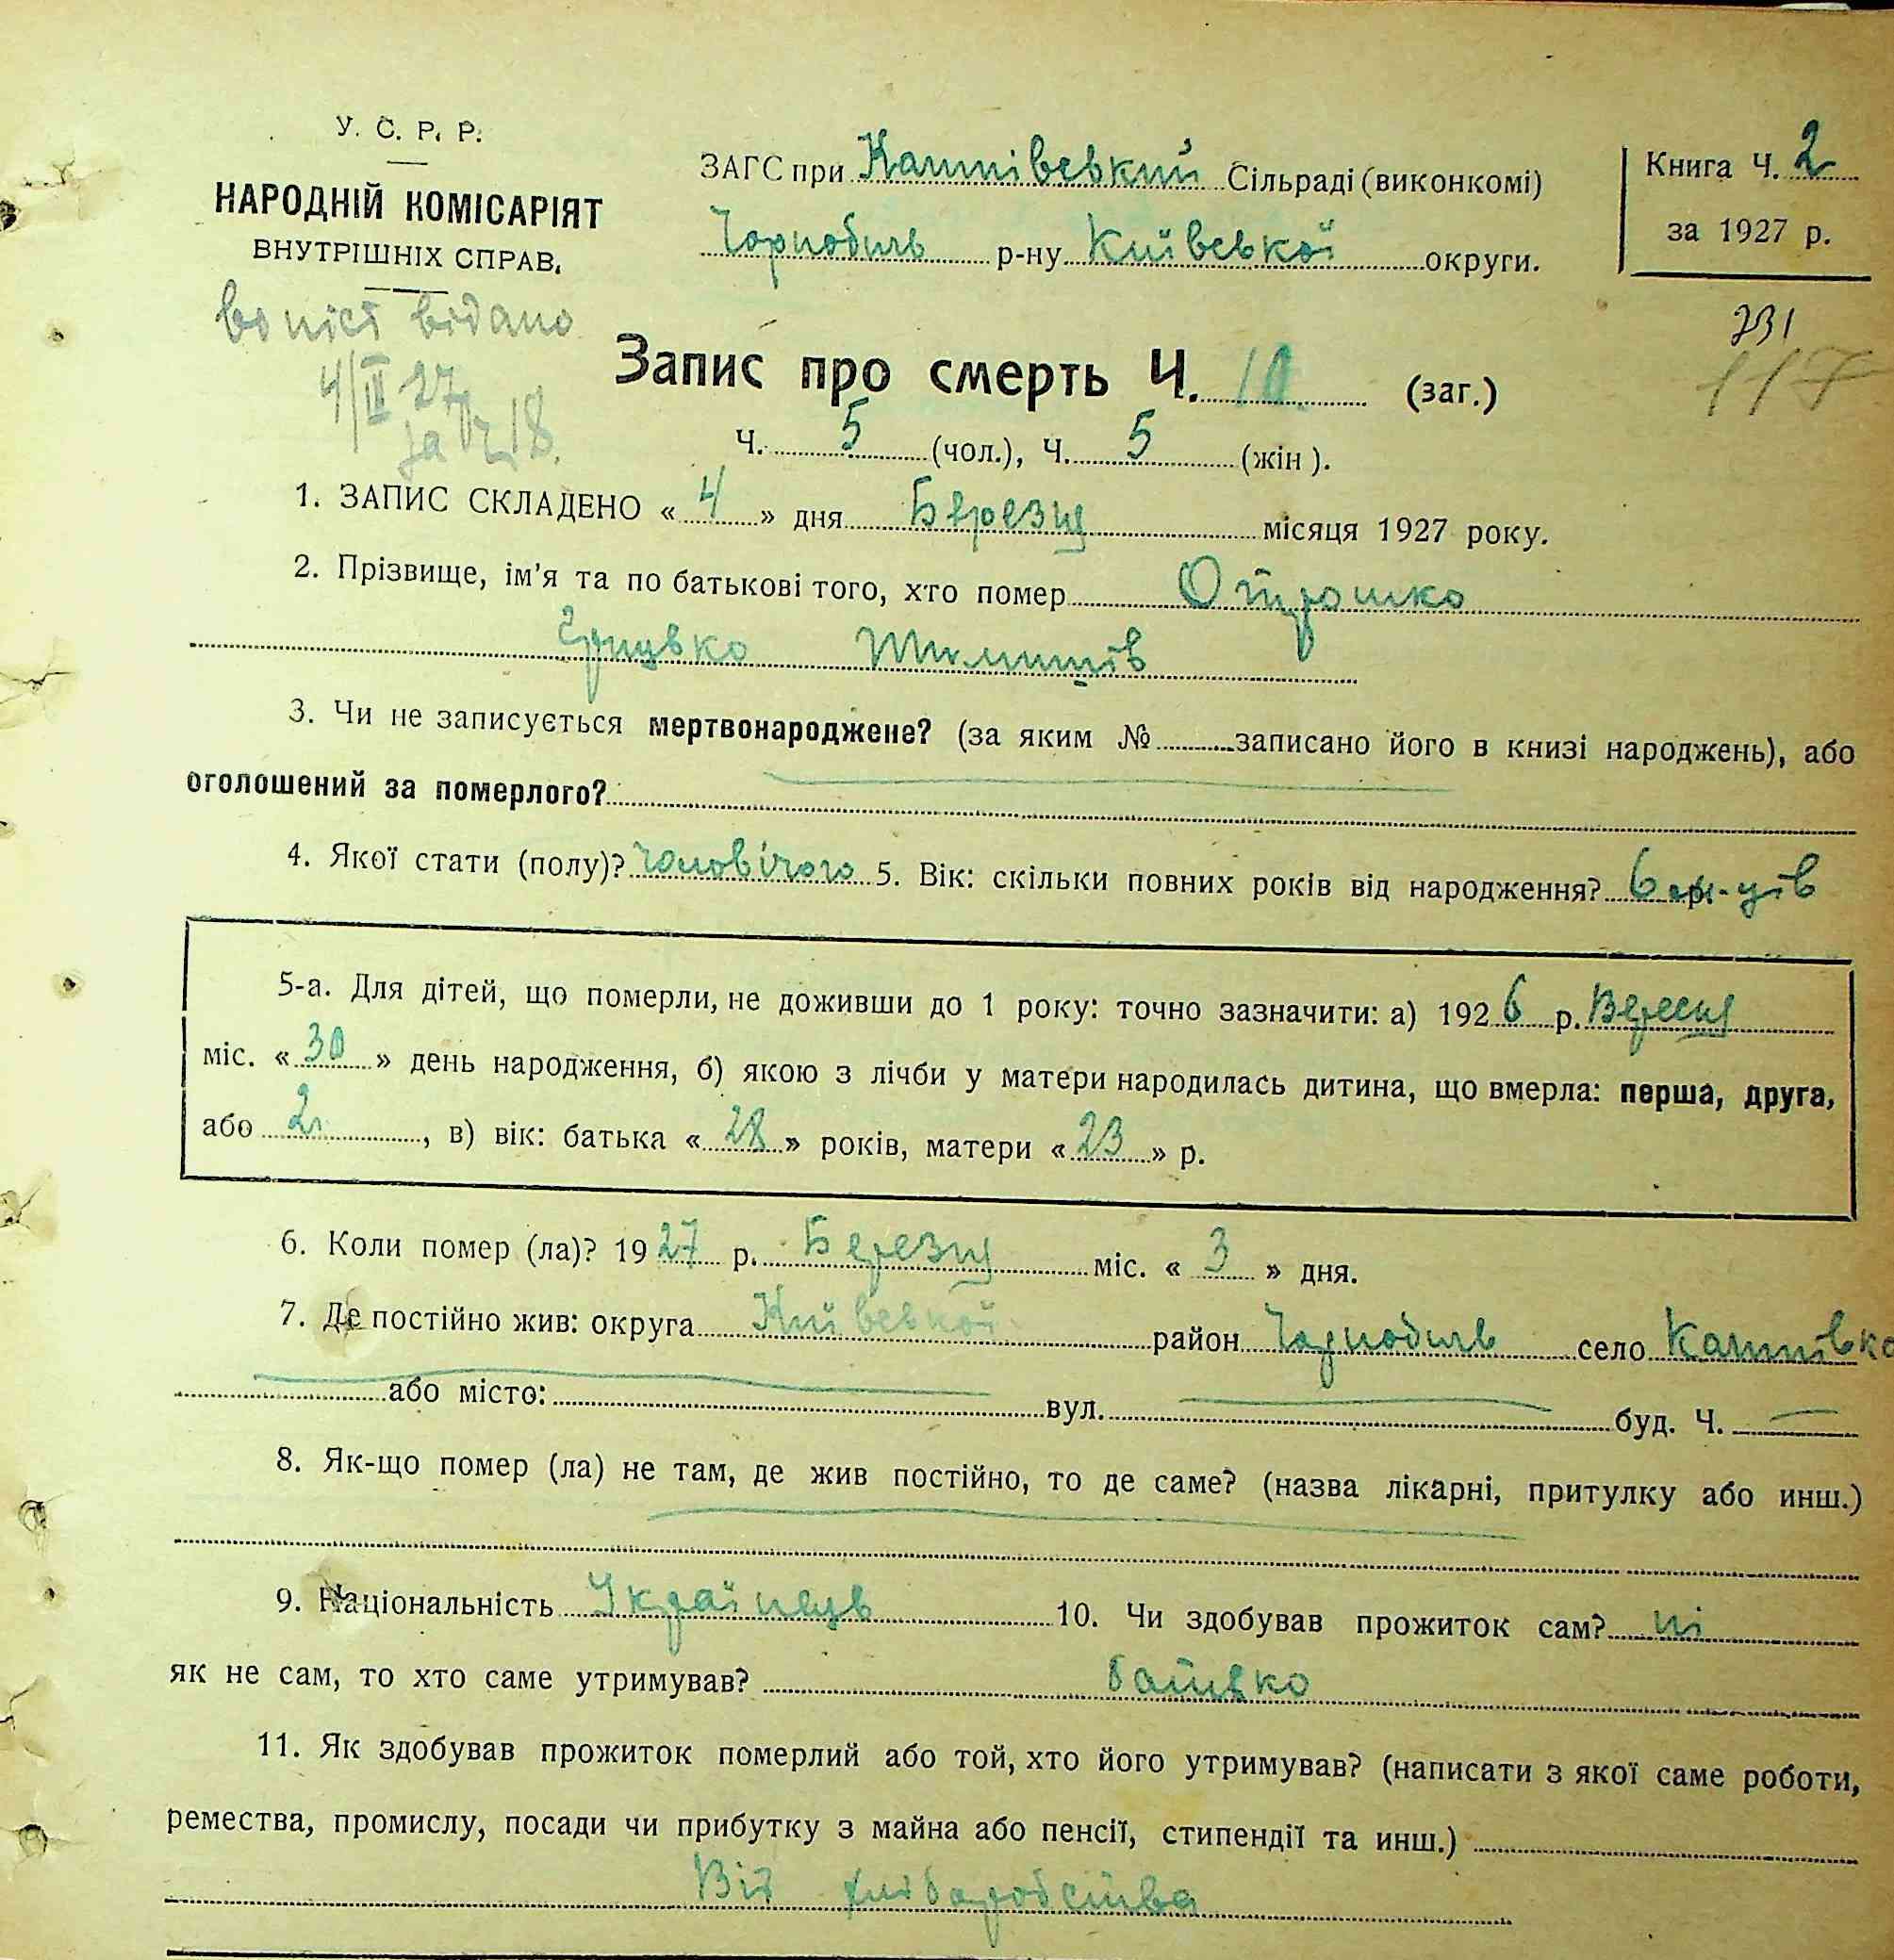 У. С. Р. Р.
НАРОДНІЙ КОМІСАРІЯТ
ВНУТРІШНІХ СПРАВ.
ЗАГС при Кашпівський Сільраді (виконкомі)
Чорнобиль р-ну Київської округи.
Книга Ч. 2
за 1927 р.
231
117
відано
4/III 27
за № 18.
Запис про смерть Ч. 10 (заг.)
Ч. 5 (чол.), Ч. 5 (жін).
1. ЗАПИС СКЛАДЕНО « 4 » дня Березня місяця 1927 року.
2. Прізвище, ім'я та по батькові того, хто помер Отрошко
Грицько
3. Чи не записується мертвонароджене? (за яким № записано його в книзі народжень), або
оголошений за померлого?
4. Якої стати (полу)? Чоловічого 5. Вік: скільки повних років від народження? 6 м-ців
5-а. Для дітей, що померли, не доживши до 1 року: точно зазначити: а) 1926 р. Вересня
міс. « 30 » день народження, б) якою з лічби у матери народилась дитина, що вмерла: перша, друга,
або 2, в) вік: батька « 28 » років, матери « 23 » р.
6. Коли помер (ла)? 1927 р. Березня міс. « 3 » дня.
7. Де постійно жив: округа Київської район Чорнобиль село
або місто: вул. буд. Ч.
8. Як-що помер (ла) не там, де жив постійно, то де саме? (назва лікарні, притулку або инш.)
9. Національність Українець 10. Чи здобував прожиток сам? ні
як не сам, то хто саме утримував? батько
11. Як здобував прожиток померлий або той, хто його утримував? (написати з якої саме роботи,
ремества, промислу, посади чи прибутку з майна або пенсії, стипендії та инш.)
Від хліборобства